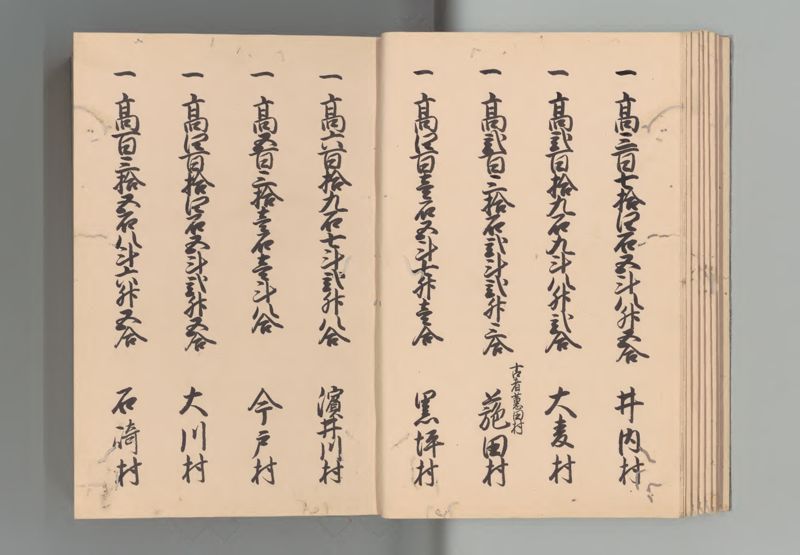 一 高三百七拾四石五斗八升五合 井内村
一 高弐百拾九石九斗八升弐合 大麦村
一 高弐百三拾石弐斗弐升三合 葹田村
古者葱田村
一 高四百壱石五斗七升壱合 黒坪村
一 高六百拾九石七斗弐升八合 濱井川村
一 高五百三拾壱石壱斗八合 今戸村
一 高四百拾四石五斗弐升五合 大川村
一 高百三拾五石八斗六升五合 石崎村